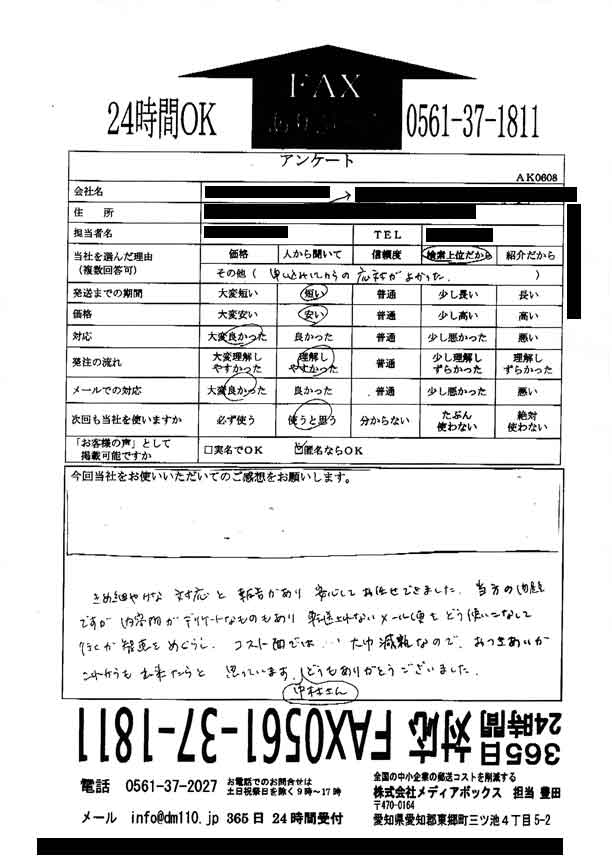 FAX
24時間OK
0561-37-1811
アンケート
AK0608
会社名
住 所
担当者名 TEL
当社を選んだ理由 (複数回答可) 価格 人から聞いて 信頼度 検索上位だから 紹介だから
その他( 申込してからの応対がよかった. )
発送までの期間 大変短い 短い 普通 少し長い 長い
価格 大変安い 安い 普通 少し高い 高い
対応 大変良かった 良かった 普通 少し悪かった 悪い
発注の流れ 大変理解しやすかった 理解しやすかった 普通 少し理解しずらかった 理解しずらかった
メールでの対応 大変良かった 良かった 普通 少し悪かった 悪い
次回も当社を使いますか 必ず使う 使うと思う 分からない たぶん使わない 絶対使わない
「お客様の声」として掲載可能ですか □実名でOK ☑匿名ならOK
今回当社をお使いいただいてのご感想をお願いします。
きめ細やかな 対応と 報告があり 安心して お任せできました. 当方の問題
ですが 内容物がデリケートなものもあり 転送されないメール便を どう使いこなして
行くか 知恵をめぐらし. コスト面では... 大巾減額なので. おつきあいが
これからも 出来たらと 思っています. どうもありがとうございました.
中村さん
365日 24時間 対応 FAX0561-37-1811
電話 0561-37-2027 お電話でのお問合せは 土日祝祭日を除く9時～17時
メール info@dm110.jp 365日 24時間受付
全国の中小企業の郵送コストを削減する
株式会社メディアボックス 担当 豊田
〒470-0164
愛知県愛知郡東郷町三ツ池4丁目5-2